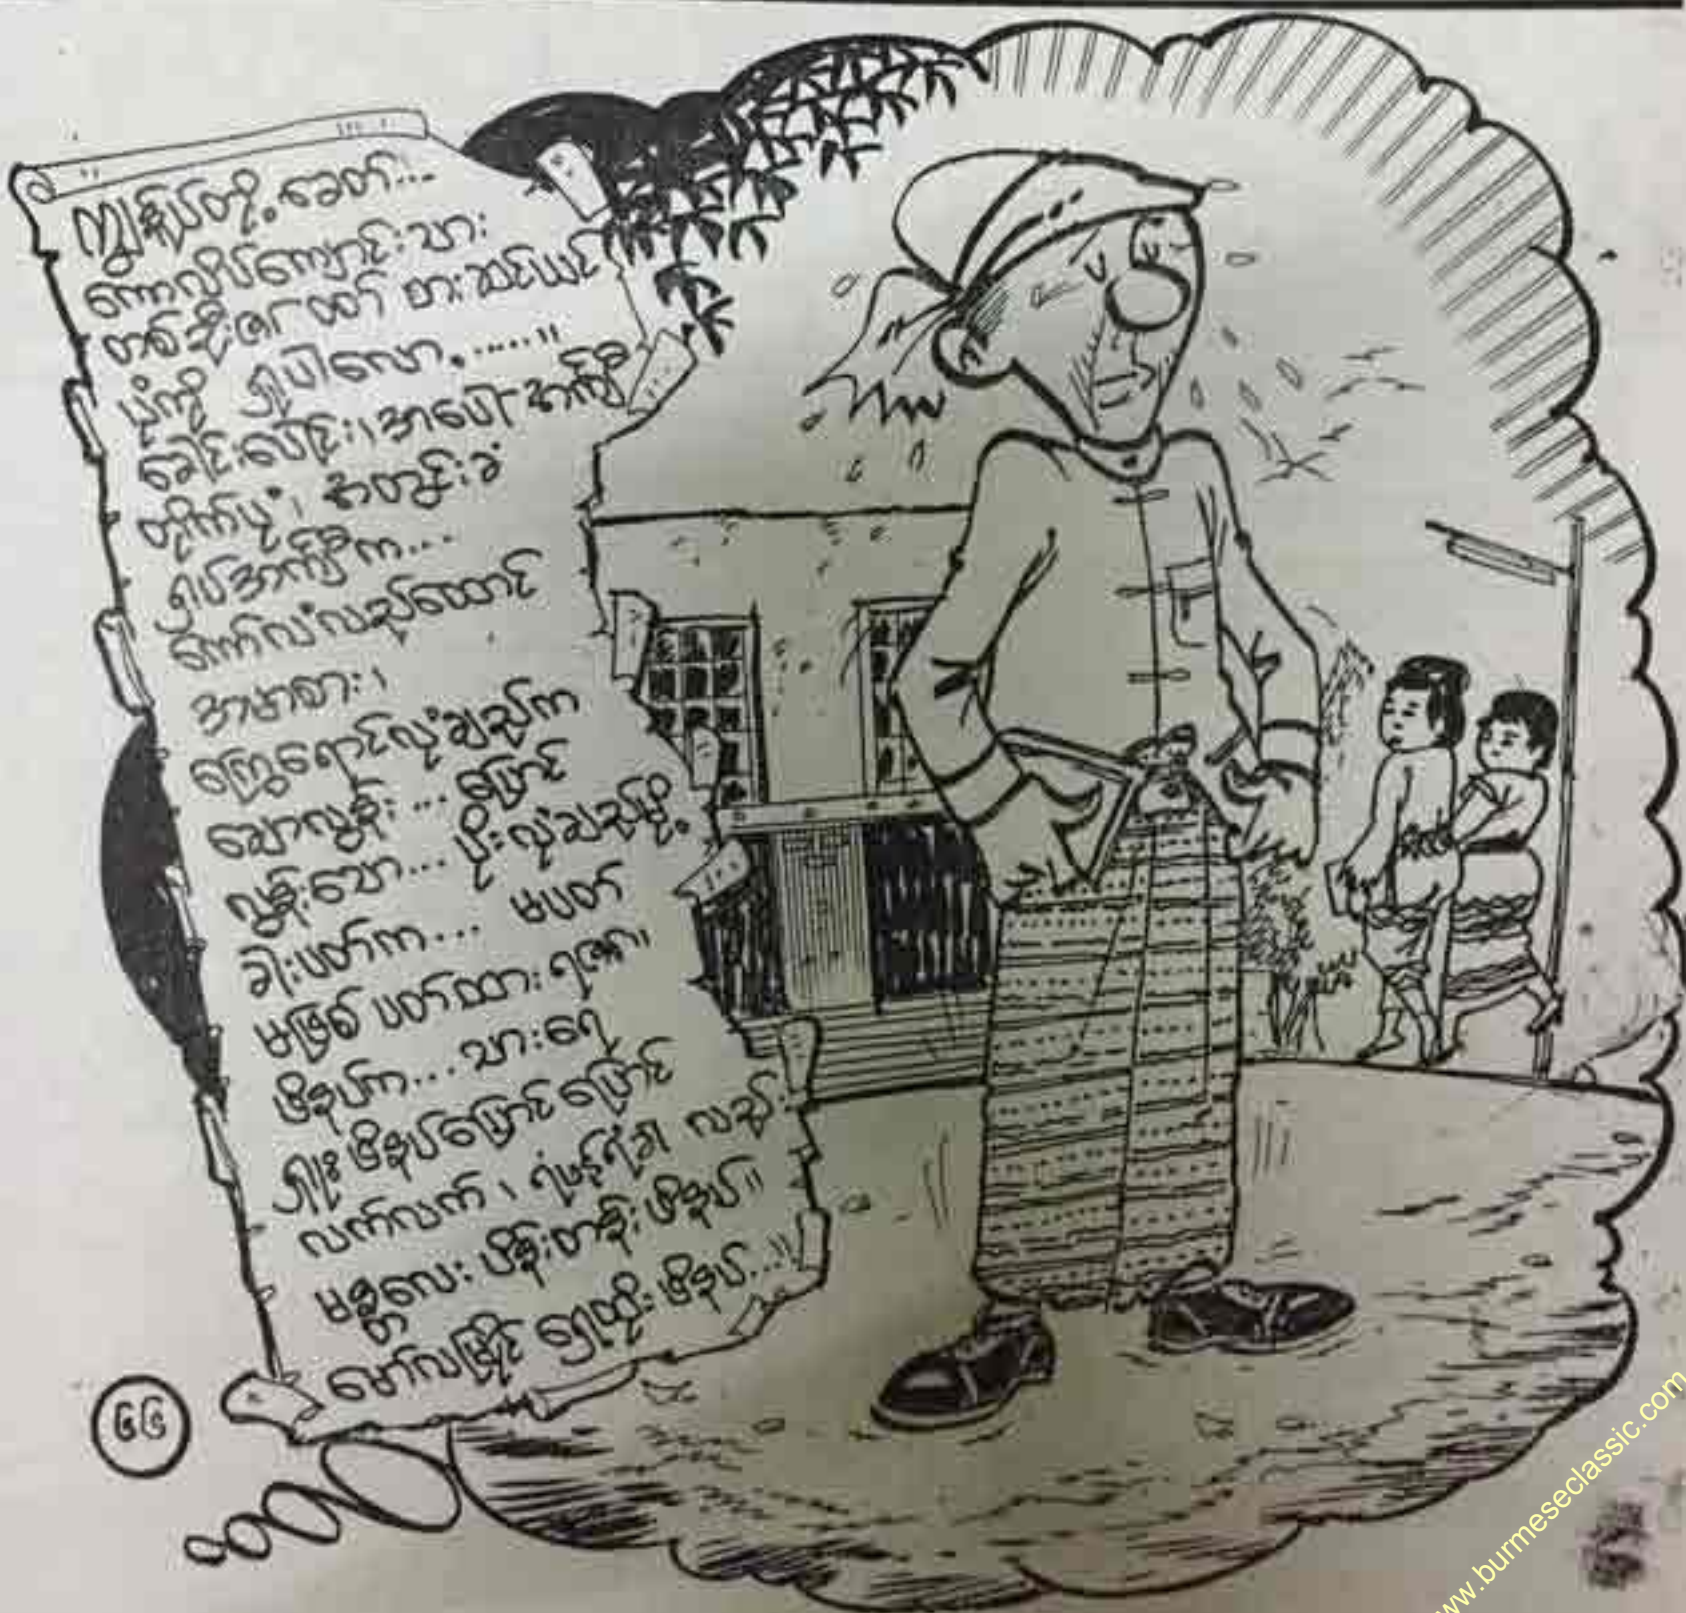 ကျွန်ုပ်တို့ခေတ်...
ကောလိပ်ကျောင်းသား
တစ်ဦး၏ ဝတ်စားဆင်ယင်
ပုံကို ရှုပါလော့.....။
ခေါင်းပေါင်း၊ အပေါ်အင်္ကျီ
တိုက်ပုံ၊ အတွင်းခံ
ရှပ်အင်္ကျီက...
ကော်လံလည်ထောင်
အမာစား၊
ကြွေရောင်လုံချည်က
ချောလွန်း... ပြောင်
လွန်းသော... ပိုးလုံချည်မို့
ခါးပတ်က... မပတ်
မဖြစ် ပတ်ထားရ၏၊
ဖိနပ်က... သားရေ
ရှူးဖိနပ်ပြောင်ပြောင်
လက်လက်၊ ရံဖန်ရံခါ လည်း
မန္တလေး ဖိန်းတန်းဖိနပ်။
မော်လမြိုင် ရွှေထိုးဖိနပ်...။
၆၆
www.burmeseclassic.com